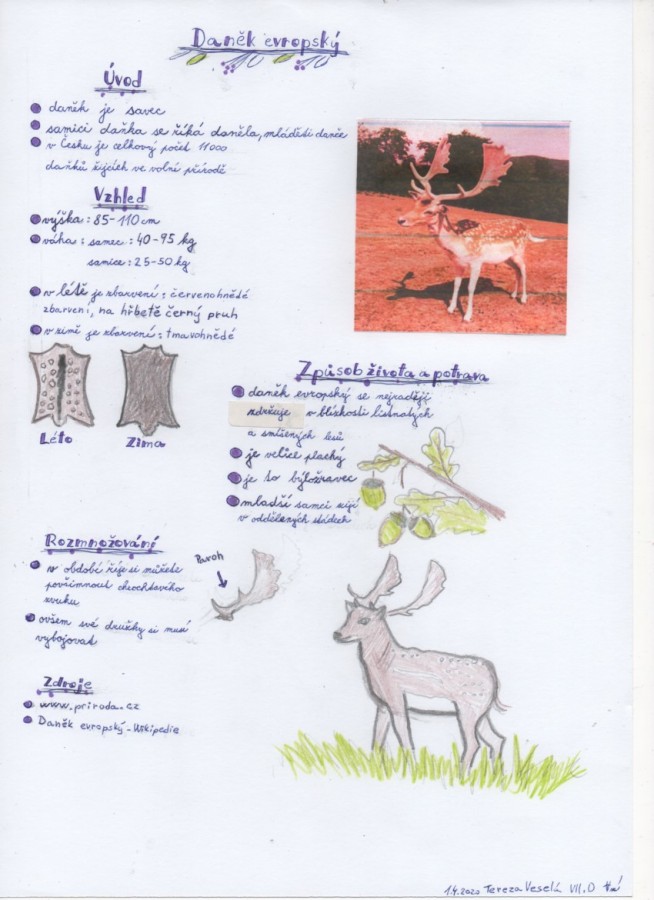 Daněk evropský
Úvod
daněk je savec
samici daňka se říká daněla, mláděti danče
v Česku je celkový počet 11000
daňků žijících ve volní přírodě
Vzhled
výška: 85-110 cm
váha: samec: 40-95 kg
samice: 25-50 kg
v létě je zbarvení: červenohnědé
zbarvení, na hřbetě černý pruh
v zimě je zbarvení: tmavohnědé
Léto
Zima
Způsob života a potrava
daněk evropský se nejraději
zdržuje v blízkosti listnatých
a smíšených lesů
je velice plachý
je to býložravec
mladší samci žijí
v oddělených stádech
Rozmnožování
v období říje si můžete
povšimnout chrochtavého
zvuku
ovšem své družky si musí
vybojovat
Paroh
Zdroje
www.priroda.cz
Daněk evropský - Wikipedie
1.4.2020 Tereza Veselá VII.D